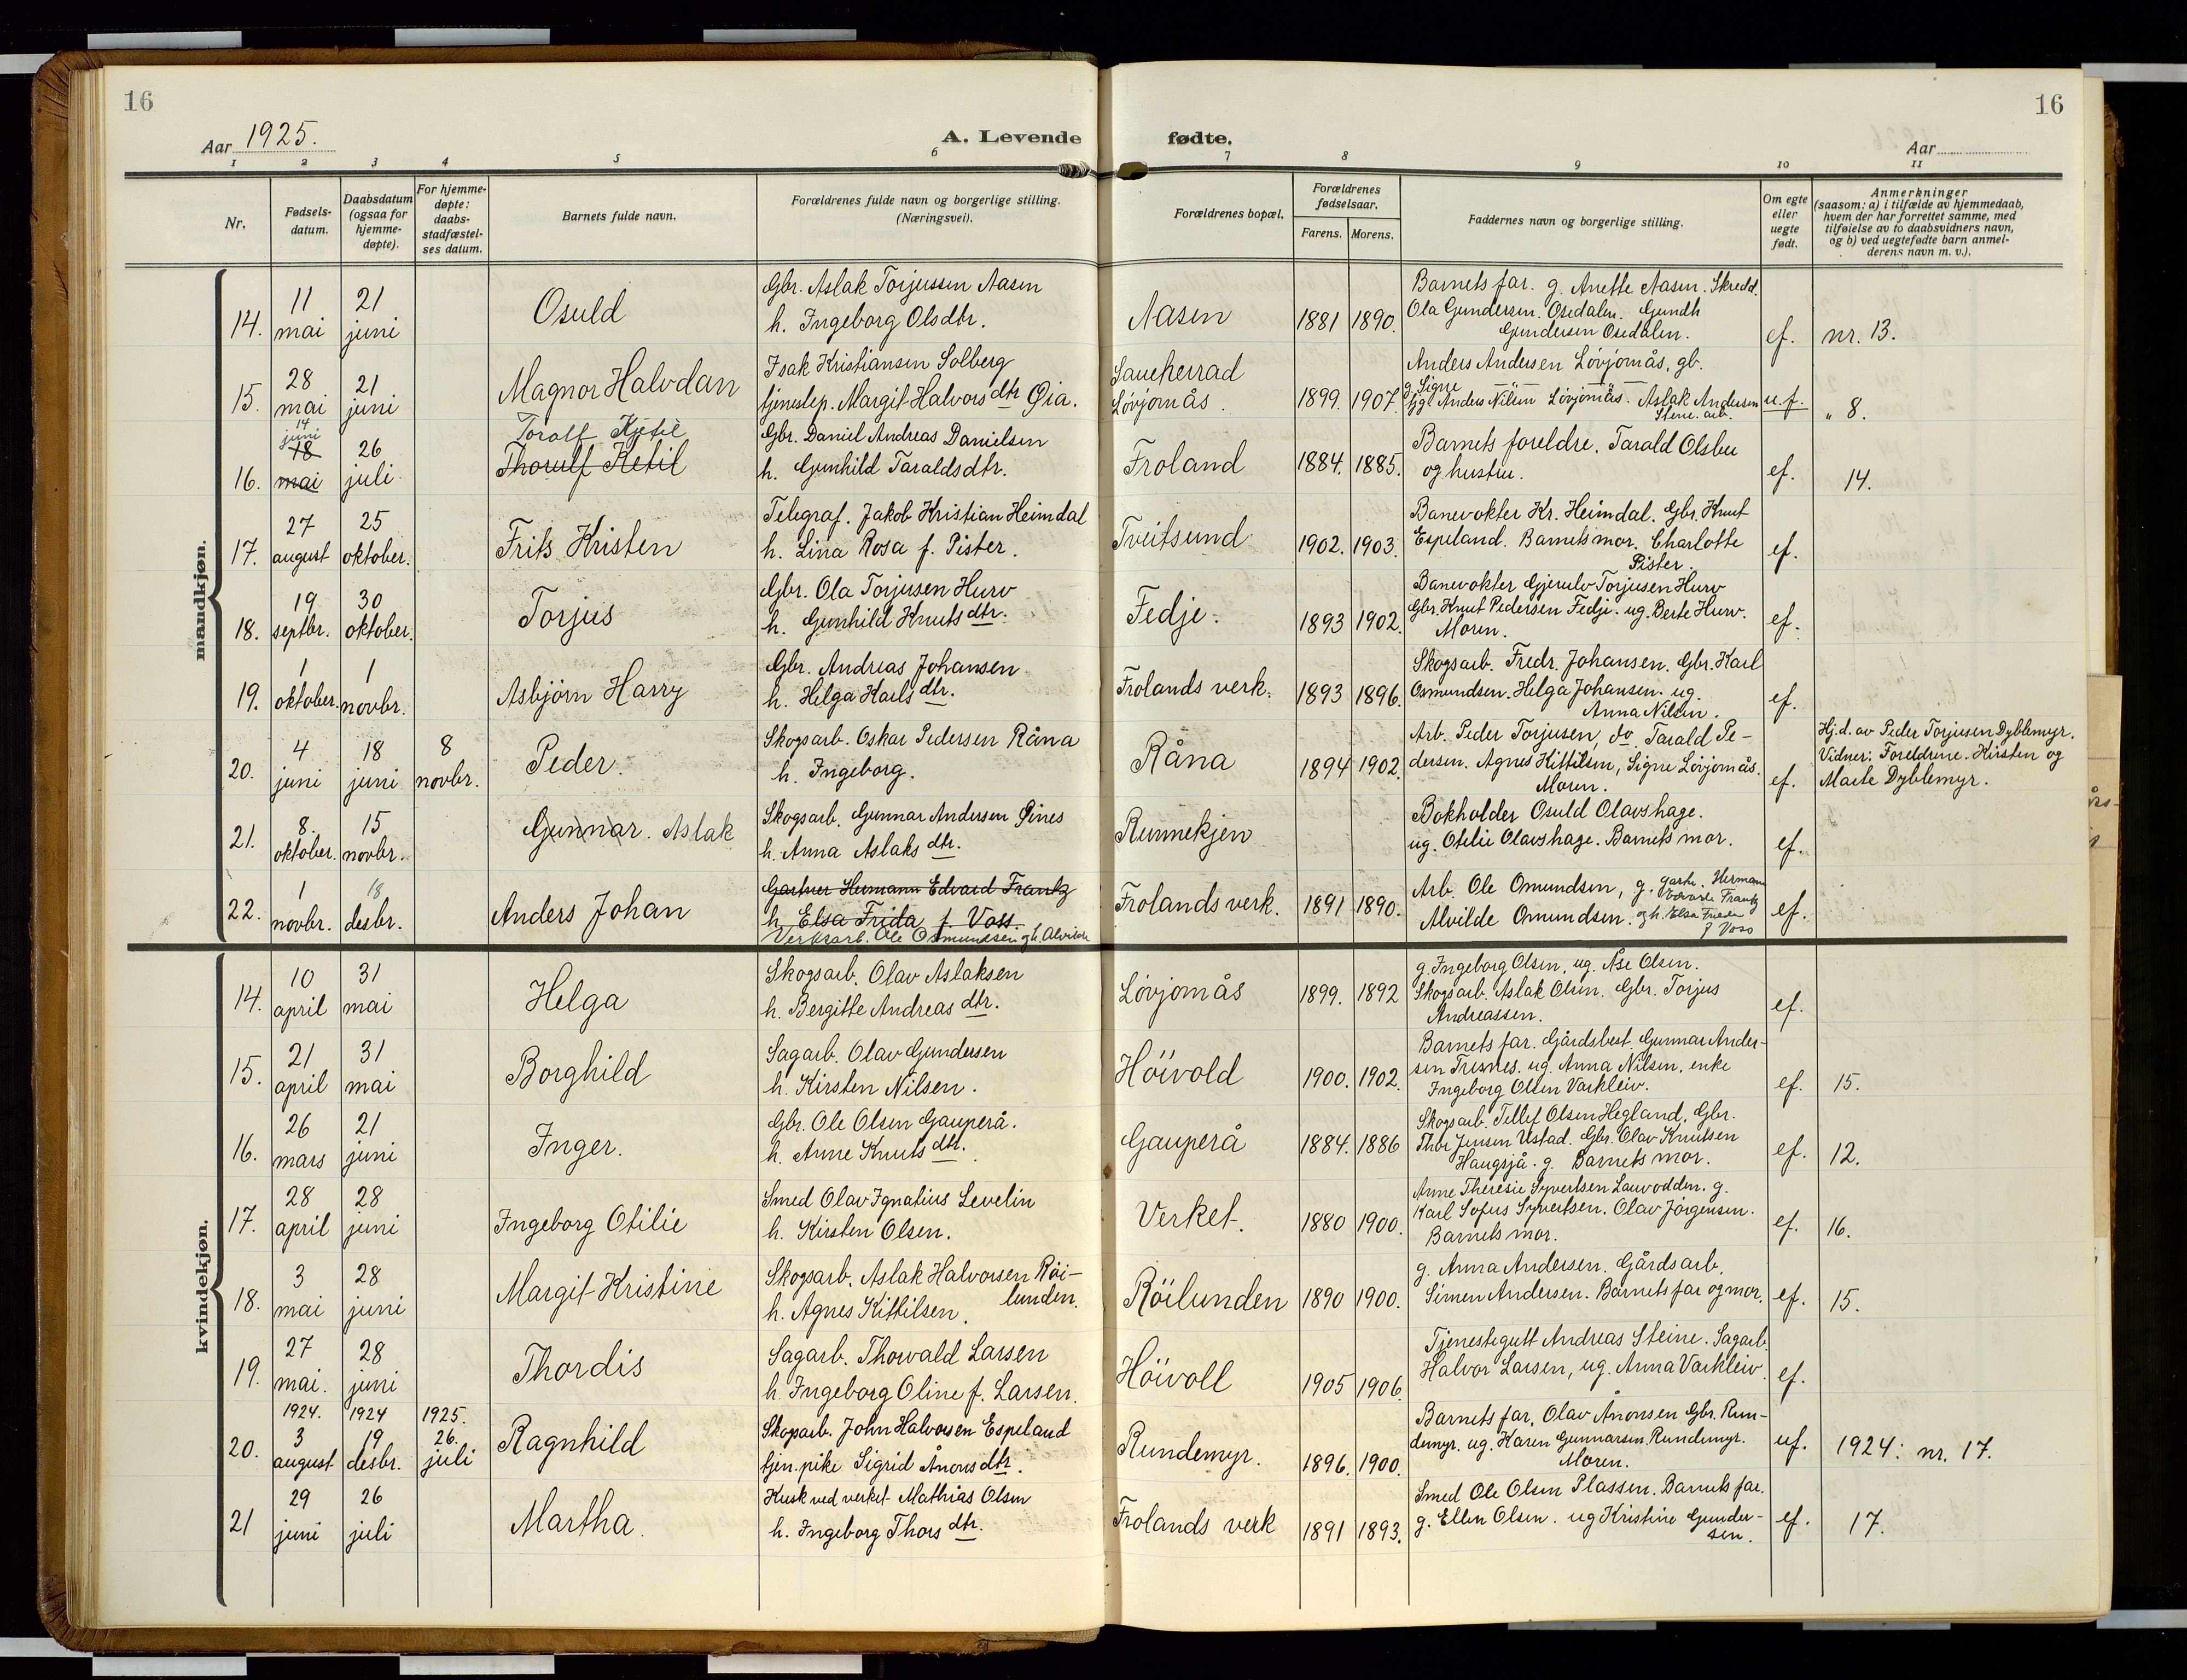 16
16
Aar 1925.
A. Levende fødte.
Aar
1 2 3 4 5 6 7 8 9 10 11
Nr.
Fødsels-
datum.
Daabsdatum
(ogsaa for
hjemme-
døpte).
For hjemme-
døpte:
daabs-
stadfæstel-
ses datum.
Barnets fulde navn.
Forældrenes fulde navn og borgerlige stilling.
(Næringsvei).
Forældrenes bopæl.
Forældrenes
fødselsaar.
Farens. Morens.
Faddernes navn og borgerlige stilling.
Om egte
eller
uegte
født.
Anmerkninger
(saasom: a) i tilfælde av hjemmedaab,
hvem der har forrettet samme, med
tilføielse av to daabsvidners navn,
og b) ved uegtefødte barn anmel-
derens navn m. v.).
mandkjøn.
14. 11 mai 21 juni Osuld
Gbr. Aslak Torjussen Aasen
h. Ingeborg Olsdtr.
Aasen 1881 1890.
Barnets far. g. Anette Aasen. Skredd.
Ola Gundersen. Osedalen. Gundh
Gundersen Osedalen.
ef. nr. 13.
15. 28 mai 21 juni Magnor Halvdan
Isak Kristiansen Solberg
tjenestep. Margit Halvorsdtr Øia.
Saueherrad
Lövjomås. 1899. 1907.
Anders Andersen Lövjomås, gb.
g. Signe
Anders Nilsen Lövjomås. Aslak Andersen
Stene. arb.
u.f. " 8.
16. 14 juni 18 mai 26 juli
Toralf Kjetil
Thorulf Ketil
Gbr. Daniel Andreas Danielsen
h. Gunhild Taraldsdtr.
Froland 1884. 1885.
Barnets foreldre. Tarald Olsbu
og hustru.
ef. 14.
17. 27 august 25 oktober. Frits Kristen
Telegraf. Jakob Kristian Heimdal
h. Lina Rosa f. Pister.
Tveitsund 1902. 1903.
Banevokter Kr. Heimdal. Gbr. Knut
Espeland. Barnets mor. Charlotte
Pister.
ef.
18. 19 septbr. 30 oktober. Torjus
Gbr. Ola Torjusen Hurv
h. Gunhild Knutsdtr.
Fedje. 1893 1902.
Banevokter Gjerulv Torjusen Hurv
Gbr. Knut Pedersen Fedje. ug. Berte Hurv.
Moren.
ef.
19. 1 oktober. 1 novbr. Asbjörn Harry
Gbr. Andreas Johansen
h. Helga Karlsdtr.
Frolands verk. 1893 1896.
Skogsarb. Fredr. Johansen. Gbr. Karl
Osmundsen. Helga Johansen. ug.
Anna Nilsen.
ef.
20. 4 juni 18 juni 8 novbr. Peder.
Skogsarb. Oskar Pedersen Råna
h. Ingeborg.
Råna 1894 1902.
Arb. Peder Torjusen, do. Tarald Pe-
dersen. Agnes Kittilsen, Signe Lövjomås.
Moren.
ef.
Hj.d. av Peder Torjusen Dyblemyr.
Vidner: Foreldrene. Kirsten og
Marte Dyblemyr.
21. 8. oktober. 15 novbr. Gunnar. Aslak
Skogsarb. Gunnar Andersen Øines
h. Anna Aslaksdtr.
Runnekjen
Bokholder Osuld Olavshage.
ug. Otilie Olavshage. Barnets mor.
ef.
22. 1 novbr. 18 desbr. Anders Johan
Gartner Hermann Edvard Frantz
h. Elsa Frida f. Voss.
Verksarb. Ole Osmundsen og h. Alvilde
Frolands verk. 1891 1890.
Arb. Ole Omundsen, g. gartn. Hermann
Edvard Frantz
Alvilde Omundsen. og h. Elsa Frieda
f Voss
ef.
kvindekjøn.
14. 10 april 31 mai Helga
Skogsarb. Olav Aslaksen
h. Bergitte Andreasdtr.
Lövjomås 1899. 1892
g. Ingeborg Olsen, ug. Åse Olsen.
Skogsarb. Aslak Olsen. Gbr. Torjus
Andreassen.
ef.
15. 21 april 31 mai Borghild
Sagarb. Olav Gundersen
h. Kirsten Nilsen.
Höivold 1900. 1902.
Barnets far. Gårdsbest. Gunnar Ander-
sen Tresnes. ug. Anna Nilsen. enke
Ingeborg Olsen Varkleiv.
ef. 15.
16. 26 mars 21 juni Inger.
Gbr. Ole Olsen Gauperå.
h. Anne Knutsdtr.
Gauperå 1884. 1886
Skogsarb. Tellef Olsen Hegland, Gbr.
Thor Jensen Ustad. Gbr. Olav Knutsen
Haugsjå. g. Barnets mor.
ef. 12.
17. 28 april 28 juni Ingeborg Otilie
Smed Olav Ignatius Levelin
h. Kirsten Olsen.
Verket. 1880 1900.
Anne Theresie Syvertsen Lauvodden. g.
Karl Sofus Syvertsen. Olav Jörgensen.
Barnets mor.
ef. 16.
18. 3 mai 28 juni Margit Kristine
Skogsarb. Aslak Halvorsen Röi-
lunden.
h. Agnes Kittilsen.
Röilunden 1890 1900.
g. Anna Andersen. Gårdsarb.
Simen Andersen. Barnets far og mor.
ef. 15.
19. 27 mai. 28 juni Thordis
Sagarb. Thorvald Larsen
h. Ingeborg Oline f. Larsen.
Höivoll 1905 1906.
Tjenestegutt Andreas Steine. Sagarb.
Halvor Larsen, ug. Anna Varkleiv.
ef.
20. 1924. 3 august 1924 19 desbr. 1925. 26. juli Ragnhild
Skogsarb. John Halvorsen Espeland
tjen.pike Sigrid Ånonsdtr.
Rundemyr. 1896. 1900.
Barnets far, Olav Ånonsen Gbr. Run-
demyr. ug. Karen Gunnarsen Rundemyr.
Moren.
uf. 1924: nr. 17.
21 29 juni 26 juli Martha.
Kusk ved verket Mathias Olsen
h. Ingeborg Thorsdtr.
Frolands verk 1891 1893.
Smed Ole Olsen Plassen. Barnets far.
g. Ellen Olsen. ug Kristine Gunder-
sen.
ef. 17.